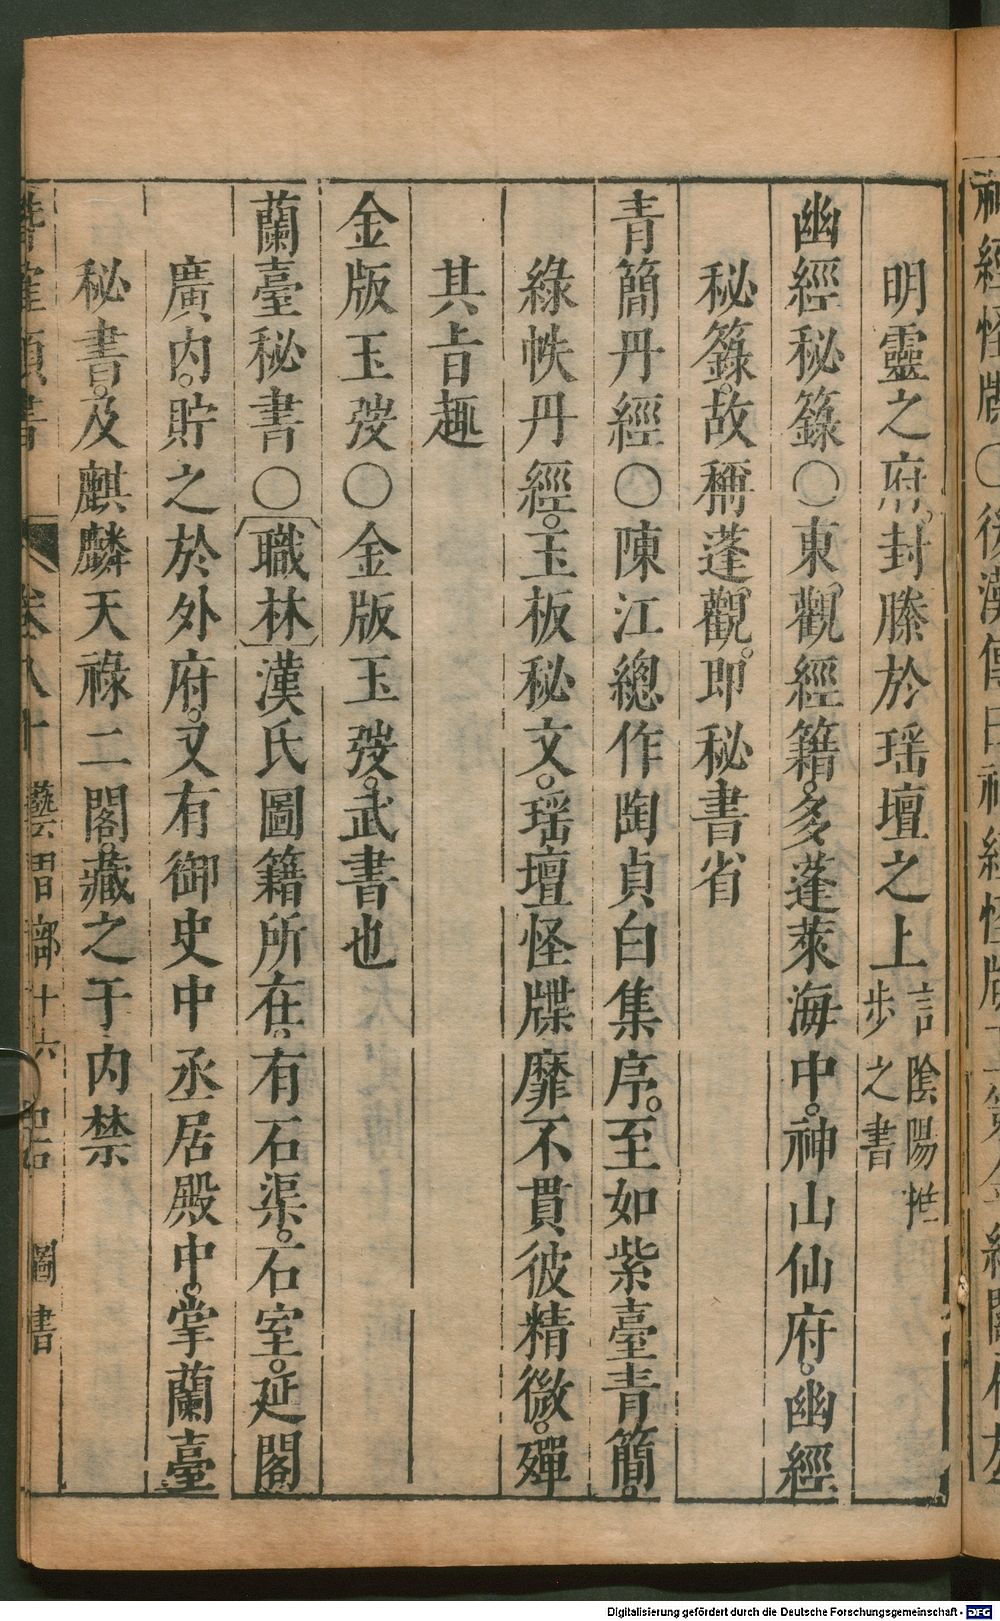 明靈之府。封縢於瑶壇之上言陰陽推步之書
幽經秘籙〇東觀經籍。多蓬萊海中。神山仙府。幽經
秘籙。故稱蓬觀。即秘書省
青簡丹經〇陳江總作陶貞白集序。至如紫臺青簡。
綠帙丹經。玉板秘文。瑶壇怪牒。靡不貫彼精微。殫
其旨趣
金版玉弢〇金版玉弢。武書也
蘭臺秘書〇職林漢氏圖籍所在。有石渠。石室。延閣
廣内。貯之於外府。又有御史中丞居殿中。掌蘭臺
秘書。及麒麟天祿二閣。藏之于内禁
卷八十 藝習部十六 圖書
Digitalisierung gefördert durch die Deutsche Forschungsgemeinschaft - DFG